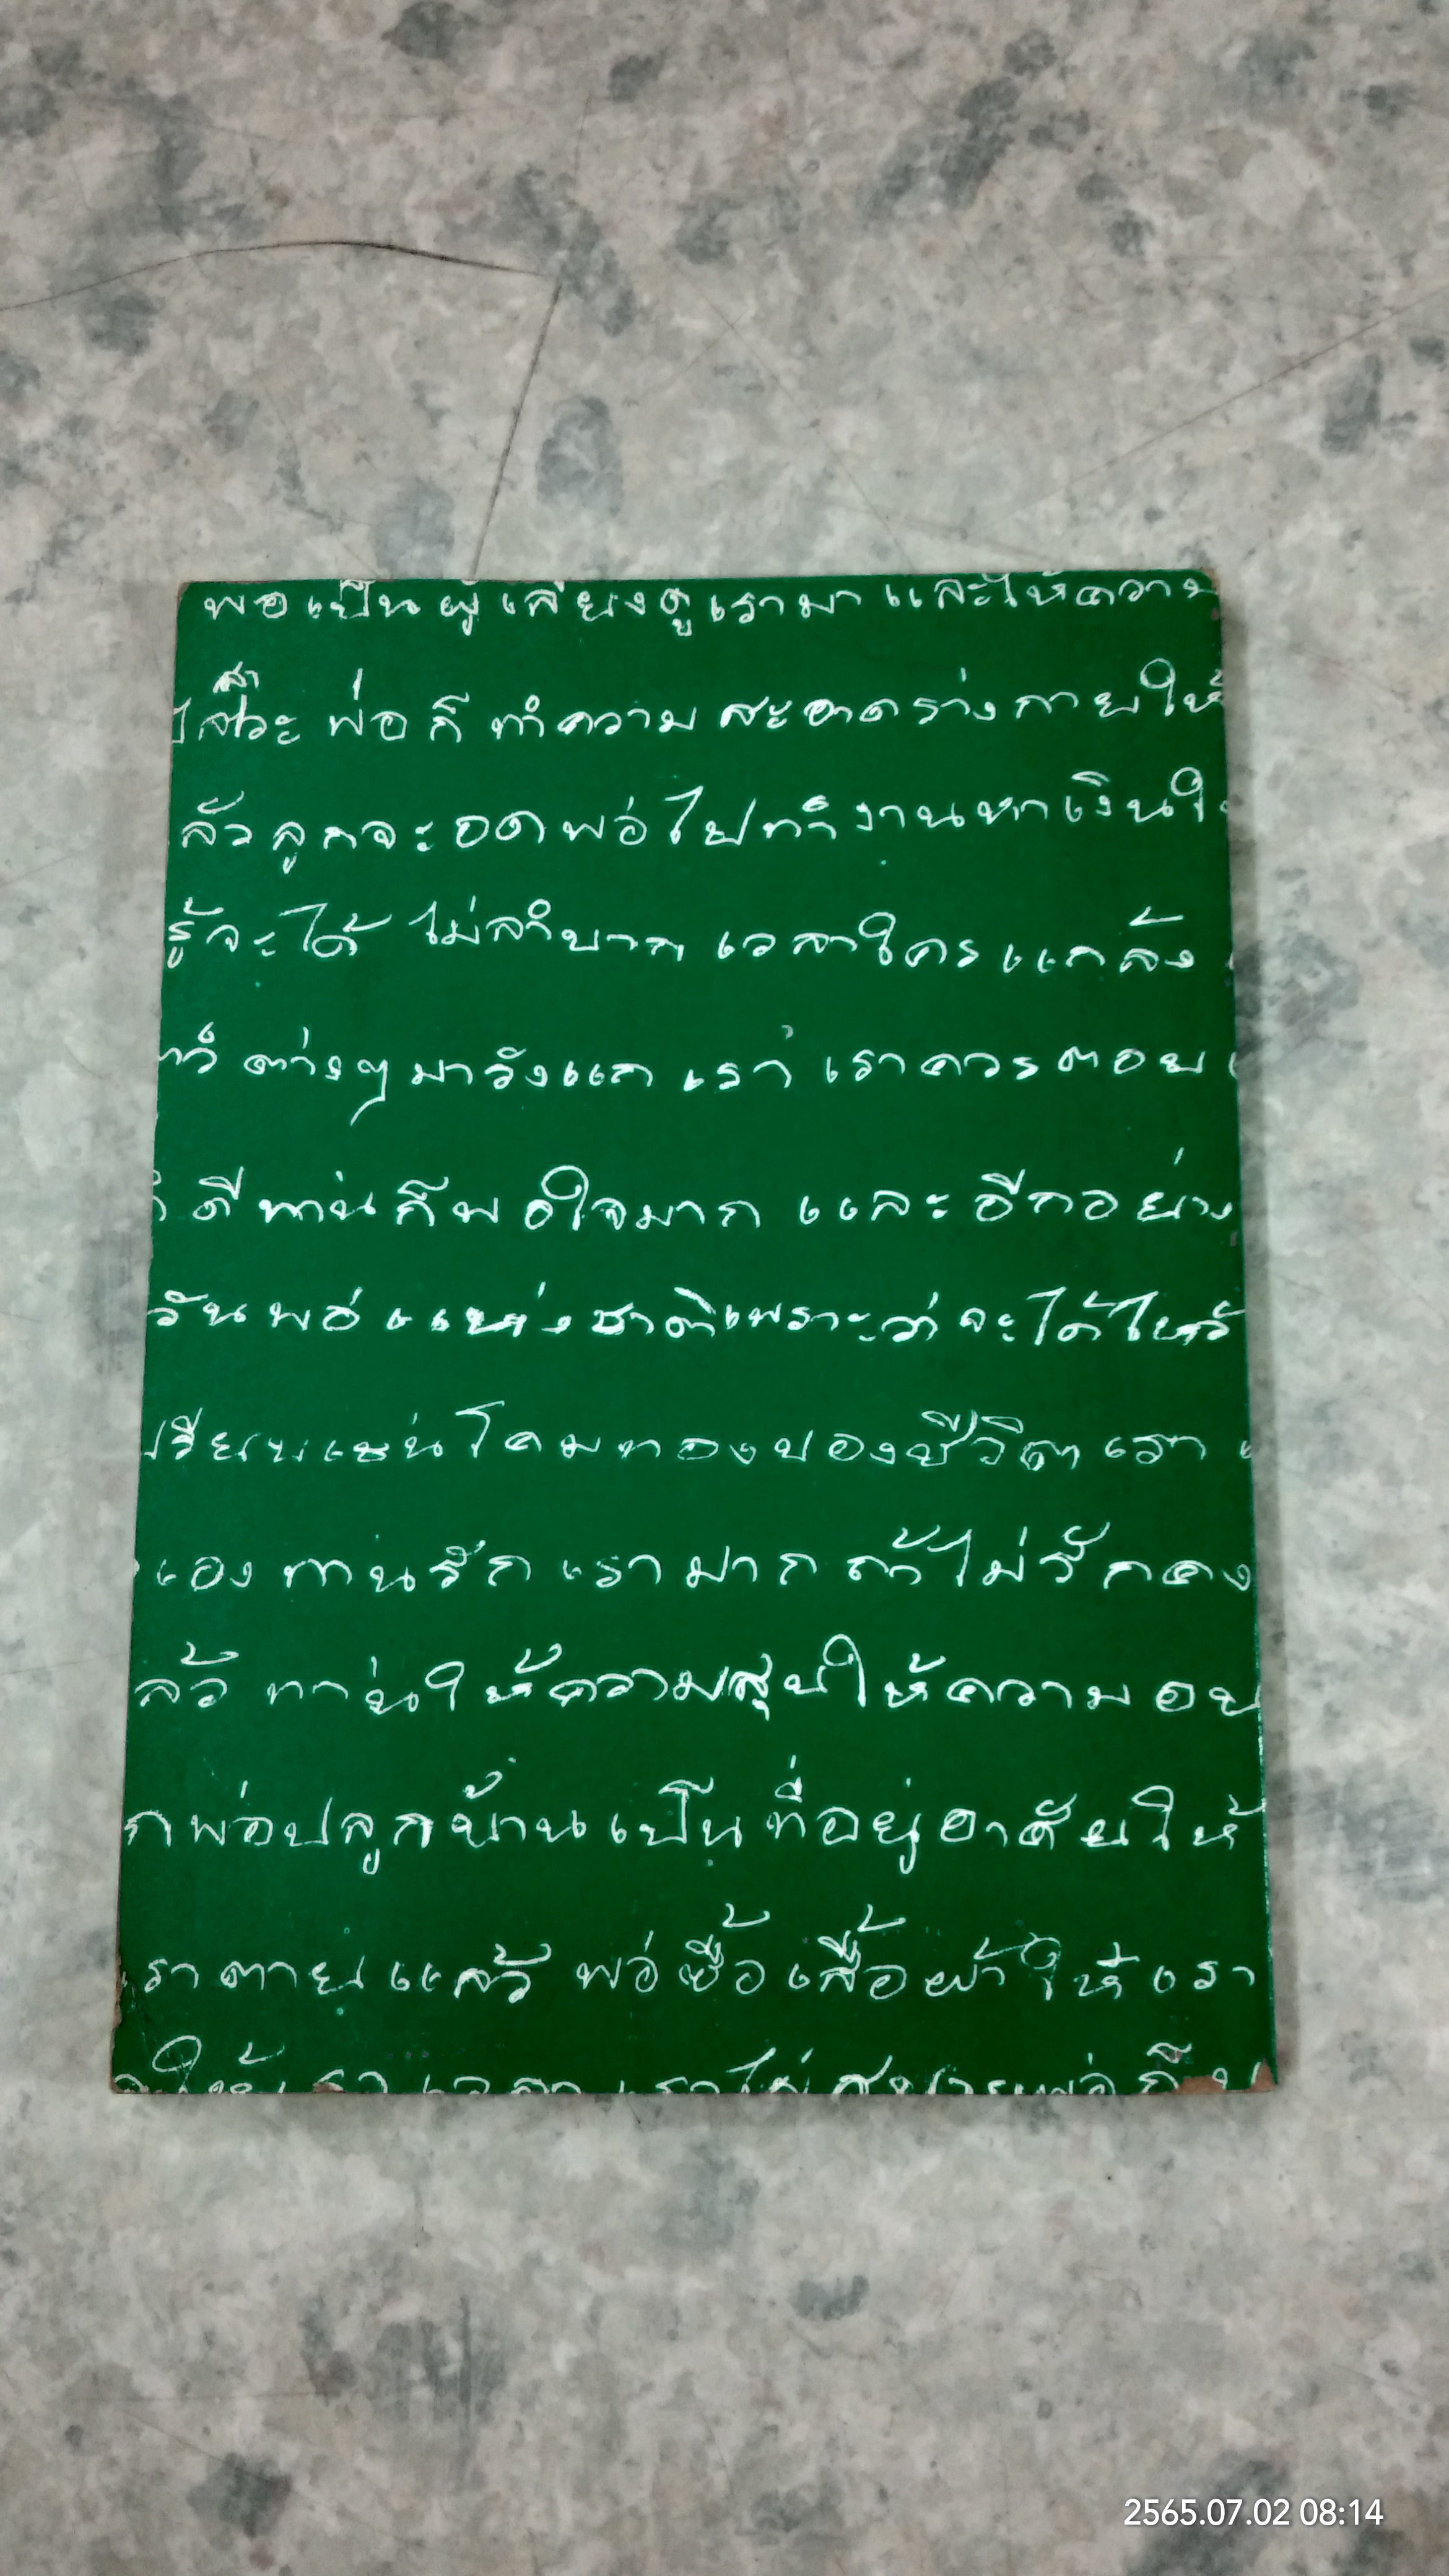 พ่อเป็นผู้เลี้ยงดูเรามา และให้ความ
พ่อก็ ทำความ สะอาดร่างกายให้
ลัวลูกจะอดพ่อไปทำงานหาเงินใ
รู้จะได้ ไม่ลำบาก เวลาใครแกล้ง
ต่างๆมารังแก เรา เราควรตอบ
ดีท่านก็พอใจมาก และอีกอย่าง
วันพ่อแห่งชาติเพราะว่าจะได้ไหว้
เปรียบเช่นโคมทองของชีวิตเรา
เอง ท่านรักเรามากถ้าไม่รักคง
ล้ว ท่านให้ความสุขให้ความอบ
กพ่อปลูกบ้านเป็นที่อยู่อาศัยให้
ราตายแล้ว พ่อซื้อเสื้อผ้าให้เรา
ให้เรา เวลาเราไม่สบายพ่อก็
2565.07.02 08:14